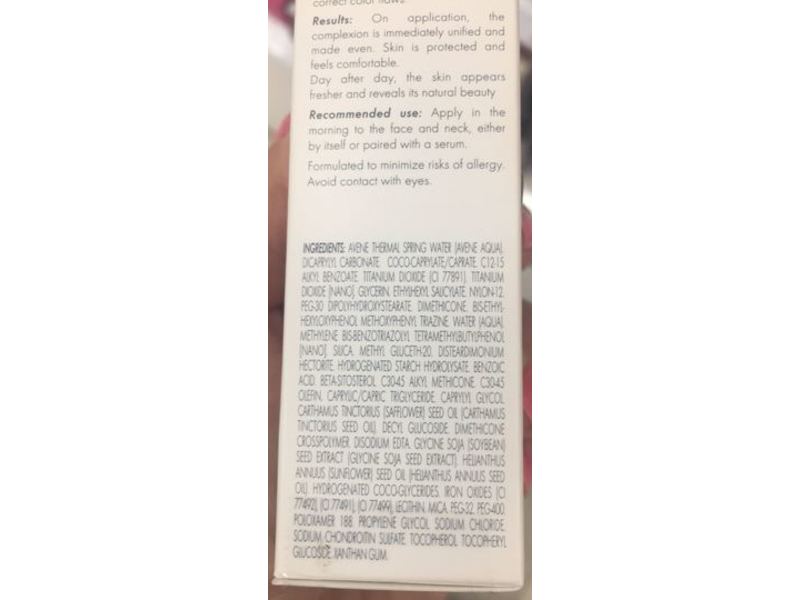 correct color flaws.
Results: On application, the
complexion is immediately unified and
made even. Skin is protected and
feels comfortable.
Day after day, the skin appears
fresher and reveals its natural beauty
Recommended use: Apply in the
morning to the face and neck, either
by itself or paired with a serum.
Formulated to minimize risks of allergy.
Avoid contact with eyes.
INGREDIENTS: AVENE THERMAL SPRING WATER (AVENE AQUA).
DICAPRYLYL CARBONATE. COCO-CAPRYLATE/CAPRATE. C12-15
ALKYL BENZOATE. TITANIUM DIOXIDE (CI 77891). TITANIUM
DIOXIDE [NANO]. GLYCERIN. ETHYLHEXYL SALICYLATE. NYLON-12.
PEG-30 DIPOLYHYDROXYSTEARATE. DIMETHICONE. BIS-ETHYL-
HEXYLOXYPHENOL METHOXYPHENYL TRIAZINE. WATER (AQUA).
METHYLENE BIS-BENZOTRIAZOLYL TETRAMETHYLBUTYLPHENOL
[NANO]. SILICA. METHYL GLUCETH-20. DISTEARDIMONIUM
HECTORITE. HYDROGENATED STARCH HYDROLYSATE. BENZOIC
ACID. BETA-SITOSTEROL. C30-45 ALKYL METHICONE. C30-45
OLEFIN. CAPRYLIC/CAPRIC TRIGLYCERIDE. CAPRYLYL GLYCOL.
CARTHAMUS TINCTORIUS (SAFFLOWER) SEED OIL (CARTHAMUS
TINCTORIUS SEED OIL). DECYL GLUCOSIDE. DIMETHICONE
CROSSPOLYMER. DISODIUM EDTA. GLYCINE SOJA (SOYBEAN)
SEED EXTRACT (GLYCINE SOJA SEED EXTRACT). HELIANTHUS
ANNUUS (SUNFLOWER) SEED OIL (HELIANTHUS ANNUUS SEED
OIL). HYDROGENATED COCO-GLYCERIDES. IRON OXIDES (CI
77492), (CI 77491), (CI 77499). LECITHIN. MICA. PEG-32. PEG-400.
POLOXAMER 188. PROPYLENE GLYCOL. SODIUM CHLORIDE.
SODIUM CHONDROITIN SULFATE. TOCOPHEROL. TOCOPHERYL
GLUCOSIDE. XANTHAN GUM.